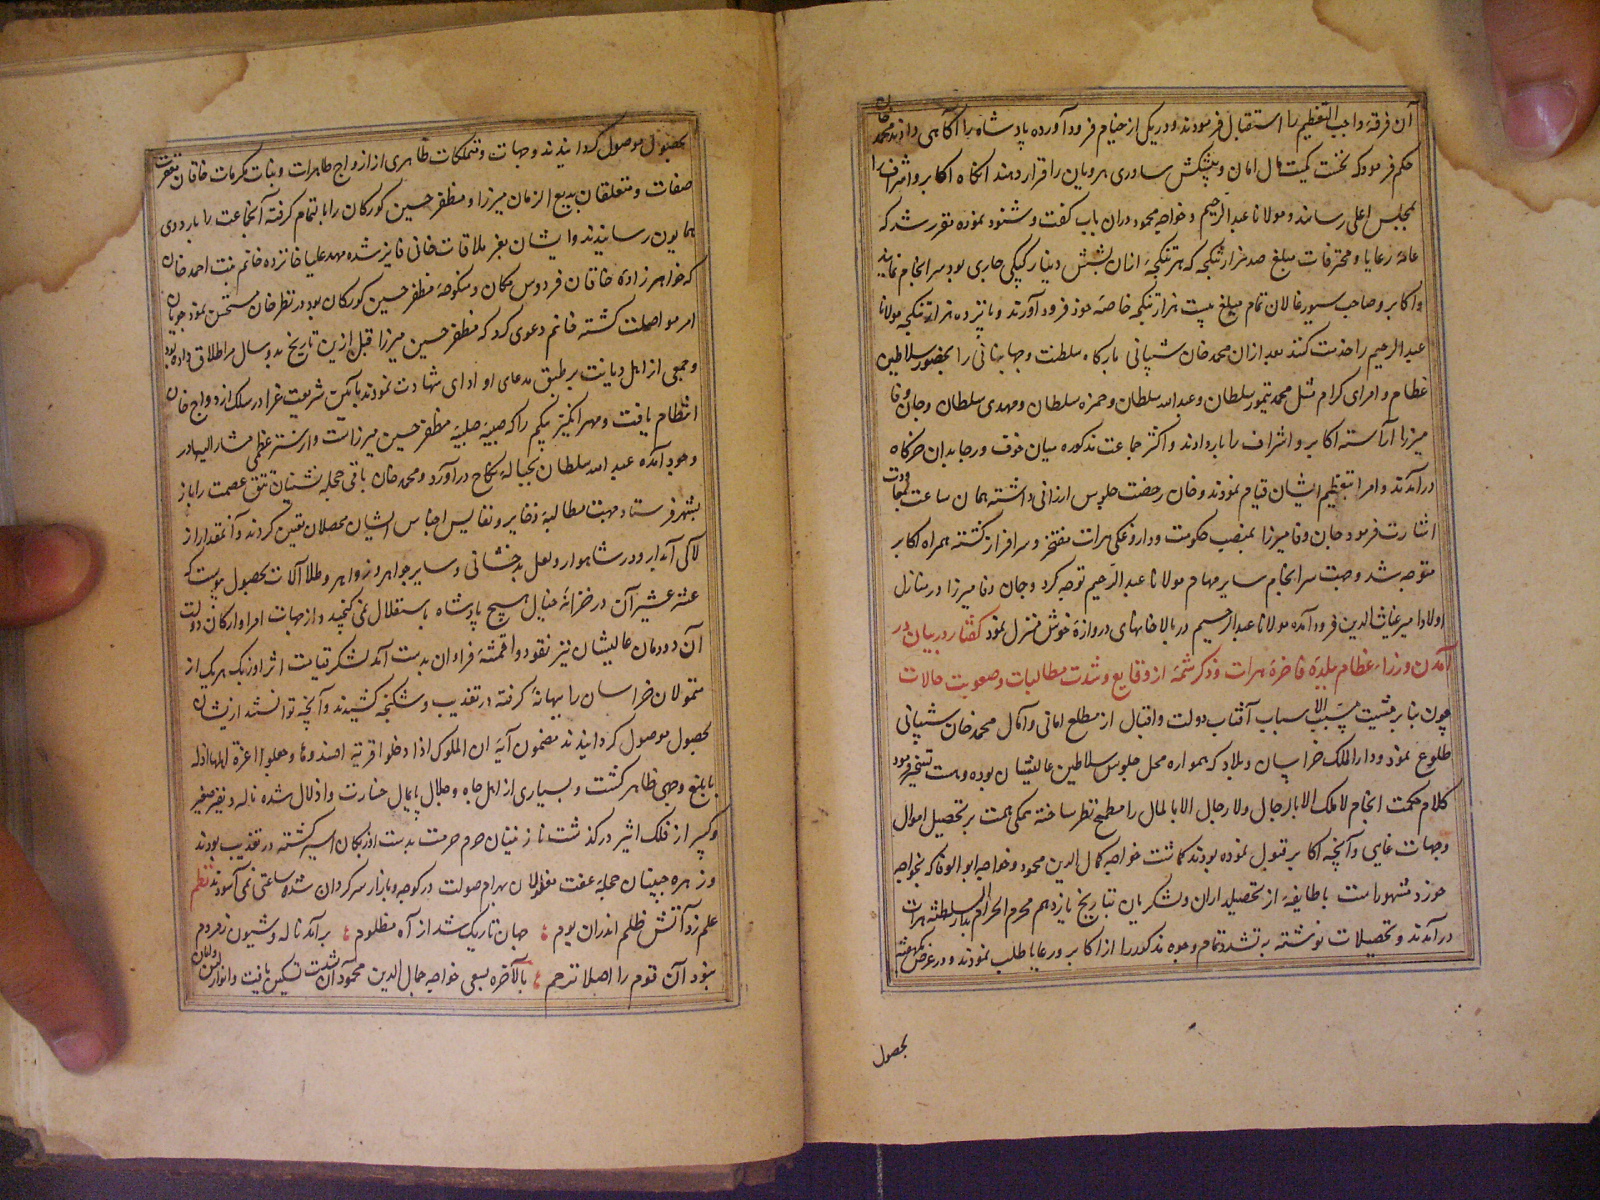 آن فرقهٔ واجب التعظیم را استقبال فرمودند و در یکی از خیام فرود آورده پادشاه را آگاهی دادند محمد خان
حکم فرمود که نخست کمیت مال امان و پیشکش ساوری هرویان را قرار دهند آنگاه اکابر و اشراف را
بمجلس اعلی رسانند و مولانا عبدالرحیم و خواجه محمود دران باب گفت و شنود نموده مقرر شد که
عامهٔ رعایا و محترفات مبلغ صد هزار تنکچه که هر تنکچهٔ ازان بشش دینار کپکی جاری بود سرانجام نمایند
و اکابر و صاحب سیورغالان تمام مبلغ بیست هزار تنکچه خاصهٔ خود فرود آورند و پانزده هزار تنکچه مولانا
عبدالرحیم را خدمت کنند بعد ازان محمد خان شیبانی بارگاه سلطنت و جهانبانی را بحضور سلاطین
عظام و امرای کرام مثل محمد تیمور سلطان و عبدالله سلطان و حمزه سلطان و مهدی سلطان و جان وفا
میرزا آراسته اکابر و اشراف را بار دادند و اکثر جماعت مذکوره میان خوف و رجا بدان خرگاه
درآمدند و امرا بتعظیم ایشان قیام نمودند و خان رخصت جلوس ارزانی داشته همان ساعت بمعاودت
اشارت فرمود جان وفا میرزا بمنصب حکومت و داروغکی هرات مفتخر و سرافراز گشته همراه اکابر
متوجه شد و جهت سرانجام سایر مهام مولانا عبدالرحیم توجه کرد و جان وفا میرزا در منازل
اولاد امیر غیاث الدین فرود آمده مولانا عبدالرحیم در بالاخانهای دروازهٔ خوش منزل نمود گفتار در بیان در
آمدن وزراء عظام ببلدهٔ فاخرهٔ هرات و ذکر شمهٔ از وقایع و شدت مطالبات و صعوبت حالات
چون بنابر مشیت مسبب الاسباب آفتاب دولت و اقبال از مطلع امانی و آمال محمد خان شیبانی
طلوع نمود و دارالملک خراسان و بلاد که همواره محل جلوس سلاطین عالیشان بوده و هست تسخیر نمود
کلام حکمت انجام لا ملک الا بالرجال ولا رجال الا بالمال را مطمح نظر ساخته همگی همت بر تحصیل اموال
و جهات غایبی و آنچه اکابر قبول نموده بودند گماشت خواجه کمال الدین محمود و خواجه ابوالوفا که بخواجه
خورد مشهور است با طایفهٔ از تحصیلداران و لشکریان بتاریخ یازدهم محرم الحرام بدارالسلطنه هرات
درآمدند و تحصیلات نوشته به تشدد تمام وجوه مذکور را از اکابر و رعایا طلب نمودند و در عرض یکهفته
بحصول
بحصول موصول گردانیدند و جهات و تملکات ظاهری از ازواج طاهرات و بنات مکرمات خاقان مغفرت
صفات و متعلقان بدیع الزمان میرزا و مظفر حسین کورکان را با بتمام گرفته آنجماعت را باردوی
همایون رسانیدند و ایشان بعز ملاقات خانی فایز شده مهد علیا خانزاده خانم بنت احمد خان
که خواهرزادهٔ خاقان فردوس مکان و منکوحهٔ مظفر حسین کورکان بود در نظر خان مستحسن نمود چون آن
امر مواصلت گشته خانم دعوی کرد که مظفر حسین میرزا قبل ازین تاریخ بدو سال مرا طلاق داده بود
و جمعی از اهل دیانت بر طبق مدعای او ادای شهادت نمودند بآئین شریعت غرا در سلک ازدواج خان
انتظام یافت و مهرانگیز بیگم را که صبیهٔ صلبیهٔ مظفر حسین میرزاست و از بنت عظمی مشار الیها در
وجود آمده عبدالله سلطان بحبالهٔ نکاح درآورد و محمد خان باقی حجله نشینان تتق عصمت را باز
بشهر فرستاد و جهت مطالبهٔ ذخایر و نفایس اجناس ایشان محصلان تعیین کردند و آنمقدار از
لآلی آبدار و در شاهوار و لعل بدخشانی و سایر جواهر و زواهر و طلا آلات بحصول پیوست که
عشر عشیر آن در خزانهٔ خیال هیچ پادشاه باستقلال نمی گنجید و از جهات امرا و ارکان دولت
آن دودمان عالیشان نیز نقود و اقمشهٔ فراوان بدست آمد لشکر قیامت اثر اوزبک هریک از
متمولان خراسان را ببهانهٔ گرفته در تعذیب و شکنجه کشیدند و آنچه توانستند ازیشان
بحصول موصول گردانیدند مضمون آیهٔ ان الملوک اذا دخلوا قریة افسدوها و جعلوا اعزة اهلها اذلة
بابلغ وجهی ظاهر گشت و بسیاری از اهل جاه و جلال پایمال خسارت و اذلال شده ناله و نفیر صغیر
و کبیر از فلک اثیر درگذشت نازنینان حرم حرمت بدست اوزبکان اسیر گشته در تعذیب بودند
و زهره جبینان حجلهٔ عفت مغولان بهرام صولت در کوچه و بازار سرگردان شده ساعتی نمی آسودند نظم
علم زد آتش ظلم اندران بوم جهان تاریک شد از آه مظلوم برآمد ناله و شیون ز مردم
نبود آن قوم را اصلا ترحم بالآخره بسعی خواجه جمال الدین محمود آن شدت تسکین یافت و انوار امن و امان